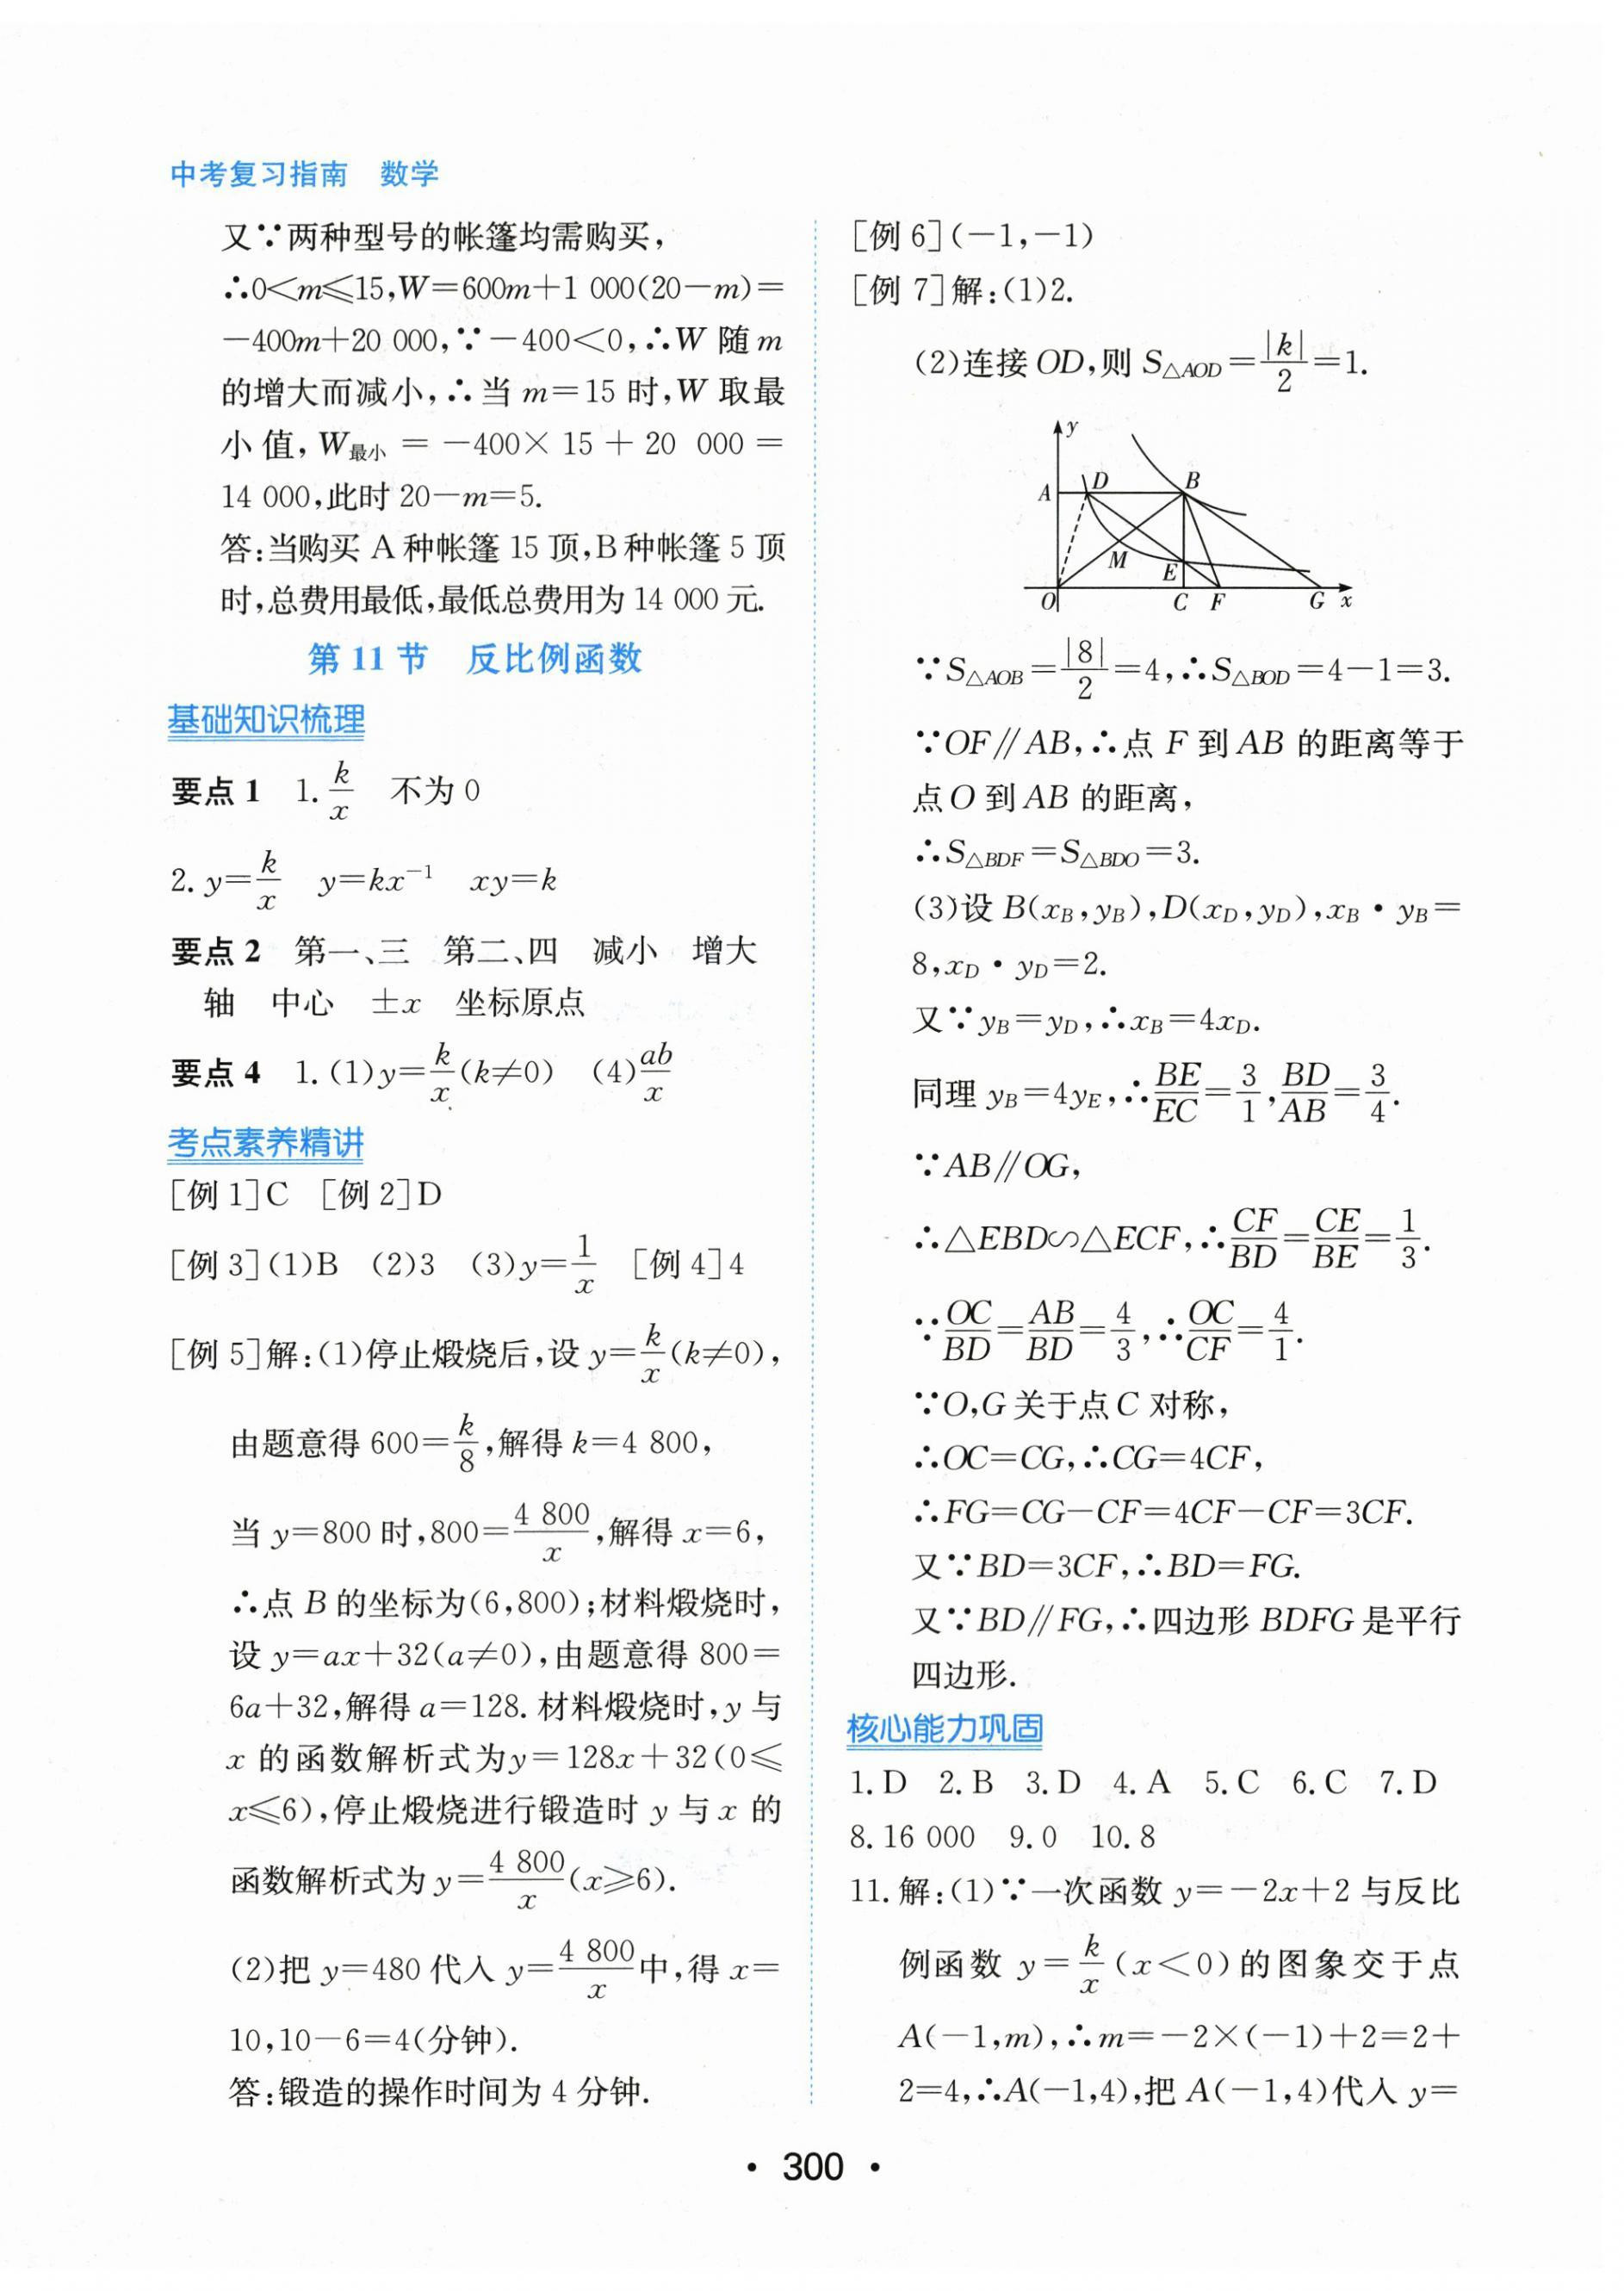 中考复习指南　数学
又∵两种型号的帐篷均需购买，
∴0＜m≤15,W＝600m＋1 000(20－m)＝
－400m＋20 000,∵－400＜0,∴W 随 m
的增大而减小,∴当 m＝15 时,W 取最
小值, W最小 ＝ －400× 15 ＋ 20 000 ＝
14 000,此时 20－m＝5.
答:当购买 A 种帐篷 15 顶,B 种帐篷 5 顶
时,总费用最低,最低总费用为 14 000 元.
第 11 节　反比例函数
基础知识梳理
要点 1　1. k/x　不为 0
2. y＝k/x　y＝kx⁻¹　xy＝k
要点 2　第一、三　第二、四　减小　增大
轴　中心　±x　坐标原点
要点 4　1. (1)y＝k/x(k≠0)　(4)ab/x
考点素养精讲
[例 1]C　[例 2]D
[例 3](1)B　(2)3　(3)y＝1/x　[例 4]4
[例 5]解:(1)停止煅烧后,设 y＝k/x(k≠0),
由题意得 600＝k/8,解得 k＝4 800,
当 y＝800 时,800＝4 800/x,解得 x＝6,
∴点 B 的坐标为(6,800);材料煅烧时,
设 y＝ax＋32(a≠0),由题意得 800＝
6a＋32,解得 a＝128. 材料煅烧时,y 与
x 的函数解析式为y＝128x＋32(0≤
x≤6),停止煅烧进行锻造时 y 与 x 的
函数解析式为 y＝4 800/x(x≥6).
(2)把 y＝480 代入 y＝4 800/x中,得 x＝
10,10－6＝4(分钟).
答:锻造的操作时间为 4 分钟.
[例 6](－1,－1)
[例 7]解:(1)2.
(2)连接 OD,则 S△AOD＝|k|/2＝1.
y
A D B
M E
O C F G x
∵S△AOB＝|8|/2＝4,∴S△BOD＝4－1＝3.
∵OF∥AB,∴点 F 到 AB 的距离等于
点 O 到 AB 的距离,
∴S△BDF＝S△BDO＝3.
(3)设 B(xB,yB),D(xD,yD),xB·yB＝
8,xD·yD＝2.
又∵yB＝yD,∴xB＝4xD.
同理 yB＝4yE,∴BE/EC＝3/1,BD/AB＝3/4.
∵AB∥OG,
∴△EBD∽△ECF,∴CF/BD＝CE/BE＝1/3.
∵OC/BD＝AB/BD＝4/3,∴OC/CF＝4/1.
∵O,G 关于点 C 对称,
∴OC＝CG,∴CG＝4CF,
∴FG＝CG－CF＝4CF－CF＝3CF.
又∵BD＝3CF,∴BD＝FG.
又∵BD∥FG,∴四边形 BDFG 是平行
四边形.
核心能力巩固
1. D　2. B　3. D　4. A　5. C　6. C　7. D
8. 16 000　9. 0　10. 8
11. 解:(1)∵一次函数 y＝－2x＋2 与反比
例函数 y＝k/x(x＜0)的图象交于点
A(－1,m),∴m＝－2×(－1)＋2＝2＋
2＝4,∴A(－1,4),把 A(－1,4)代入 y＝
· 300 ·